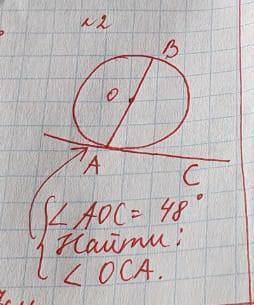 №2
B
O
A
C
∠ AOC = 48°
Найти:
∠ OCA.